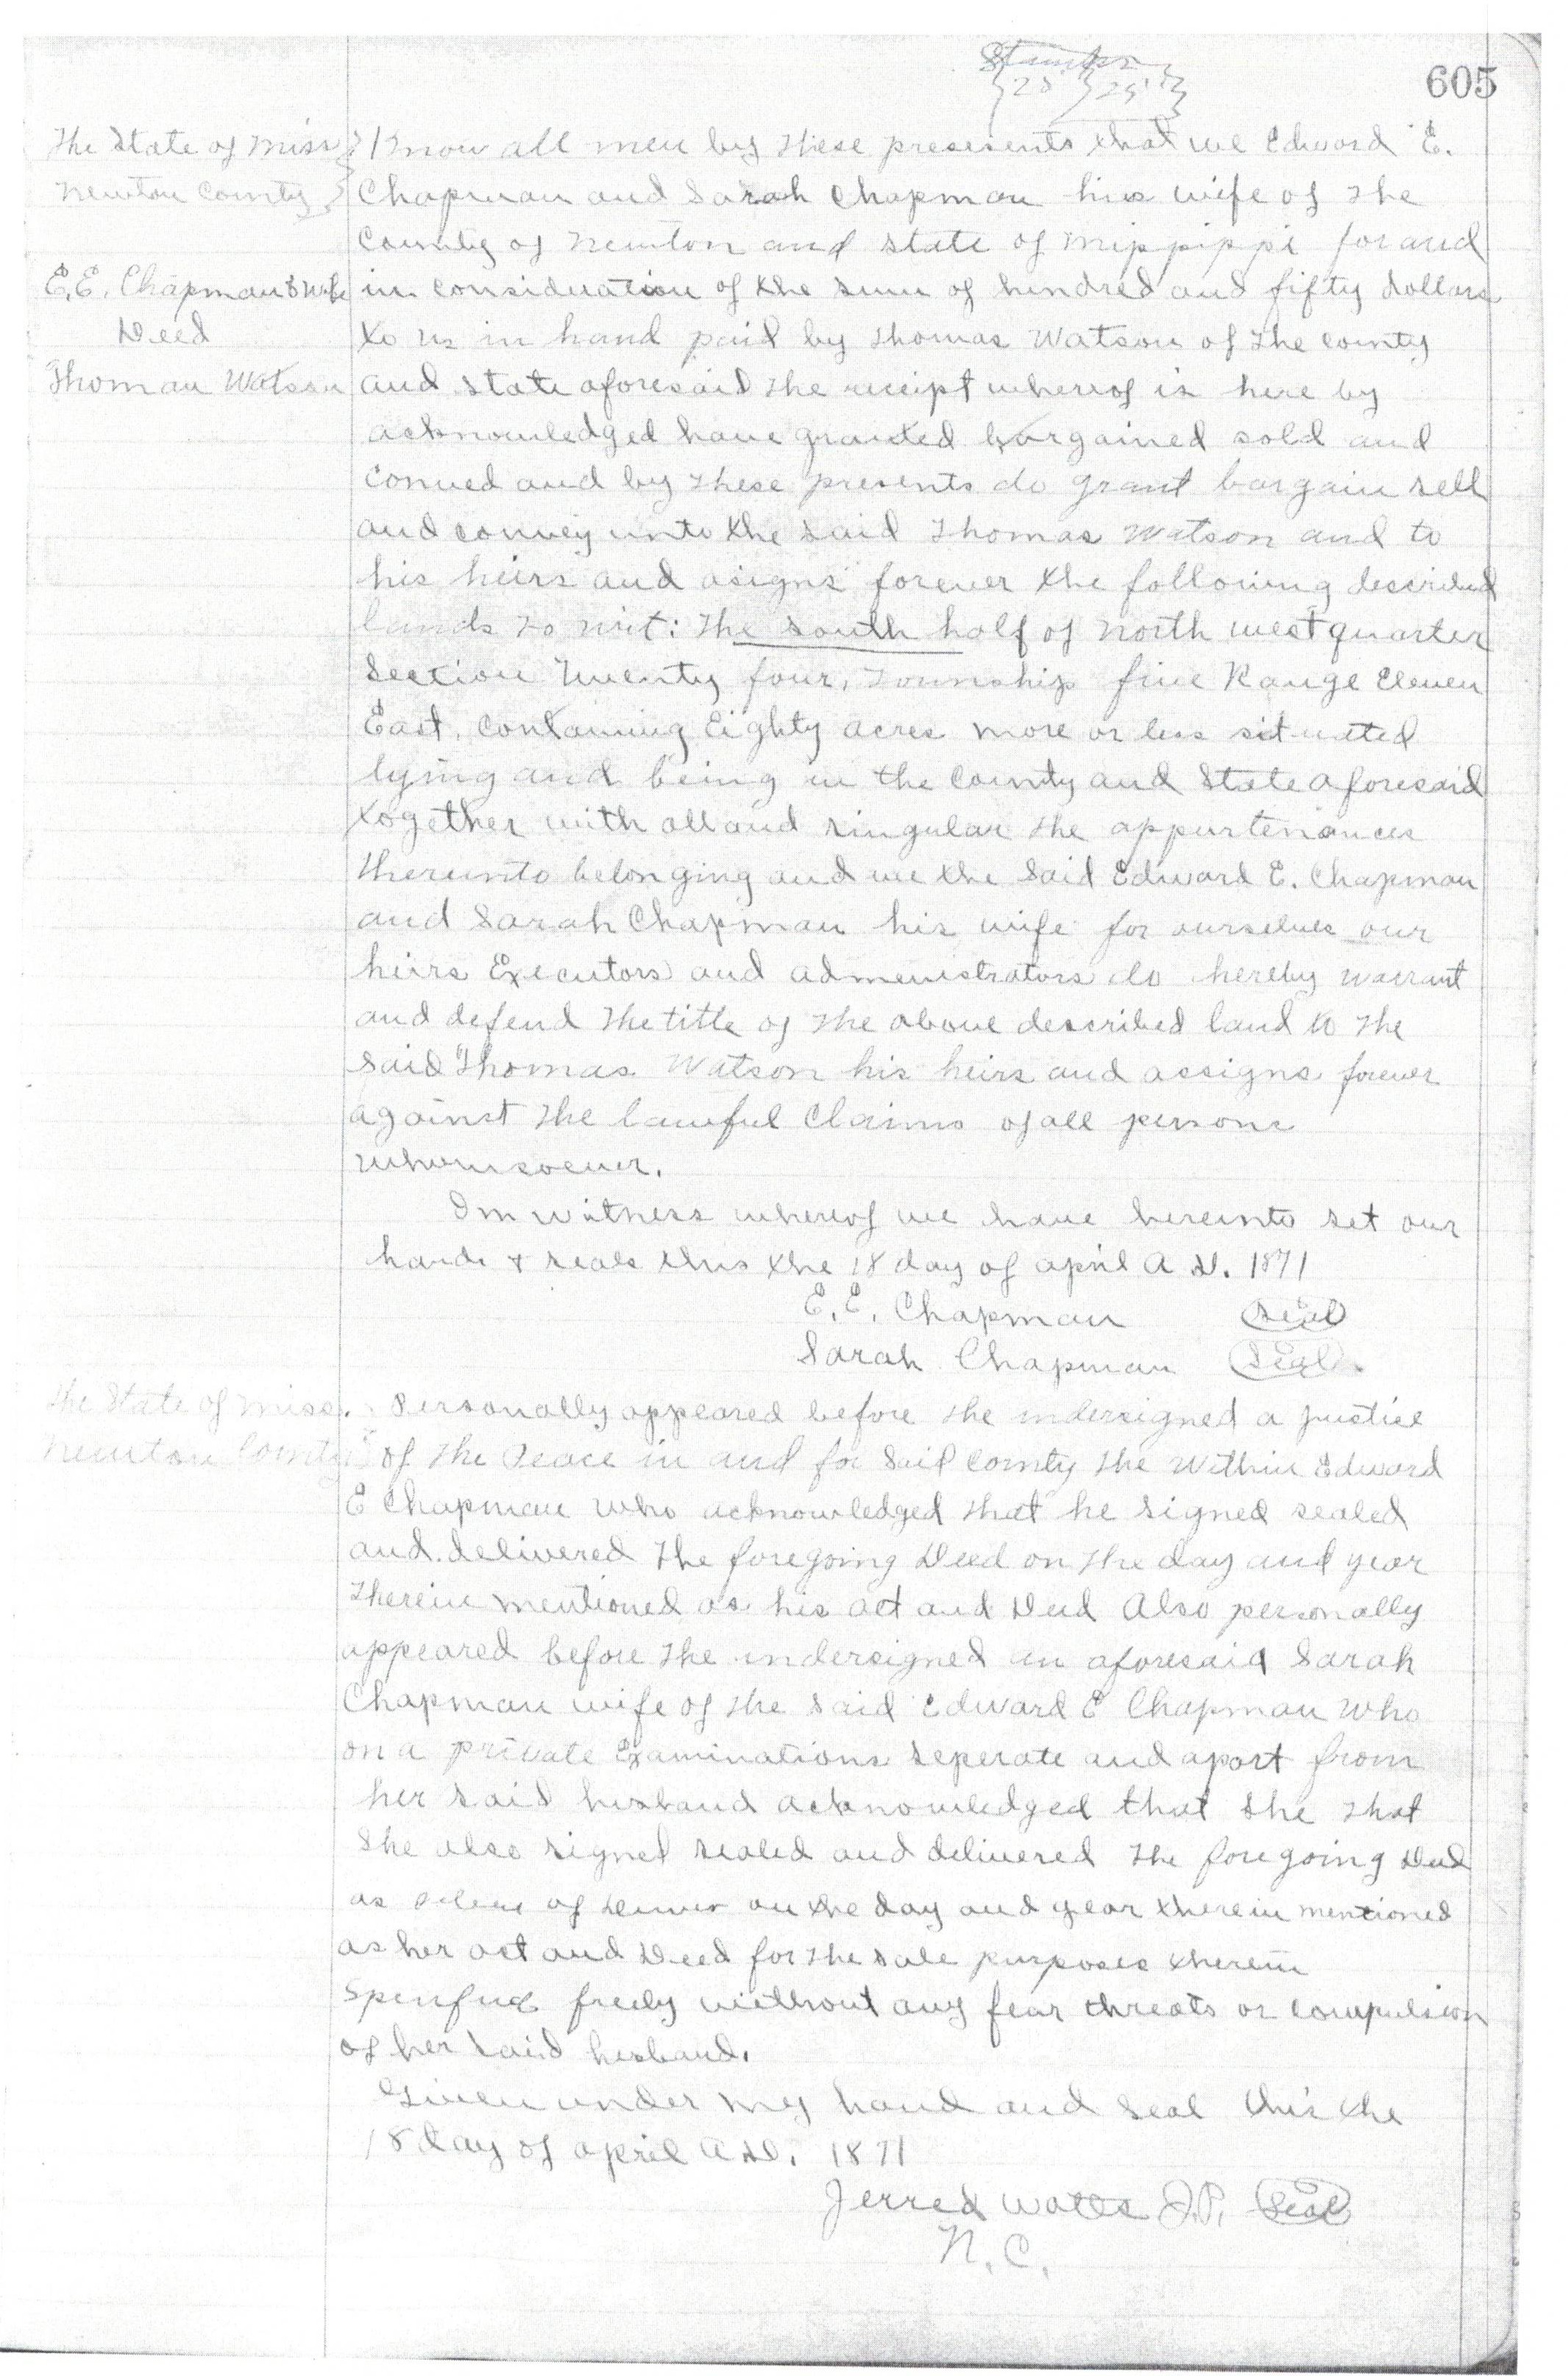 605
Stamps
25 25
The State of Miss
Newton County
E. E. Chapman & Wife
Deed
Thomas Watson
Know all men by these presesents that we Edward E.
Chapman and Sarah Chapman his wife of the
County of Newton and State of Mississippi for and
in consideration of the sum of hundred and fifty dollars
to us in hand paid by Thomas Watson of the county
and state aforesaid the receipt whereof is here by
acknowledged have granted bargained sold and
conved and by these presents do grant bargain sell
and convey unto the said Thomas Watson and to
his heirs and asigns forever the following described
lands to wit: The south half of north west quarter
Section Twenty four, Township five Range Eleven
East, containing Eighty acres more or less situated
lying and being in the County and State aforesaid
together with all and singular the appurtenances
thereunto belonging and we the said Edward E. Chapman
and Sarah Chapman his wife for ourselves our
heirs Executors and admenistrators do hereby warrant
and defend the title of the above described land to the
said Thomas Watson his heirs and assigns forever
against the lawful Claims of all persons
whomsoever.
In witness whereof we have hereunto set our
hands & seals this the 18 day of april A D. 1871
E. E. Chapman Seal
Sarah Chapman Seal
The State of Miss.
Newton County
Personally appeared before the undersigned a justice
of the Peace in and for said county the within Edward
E Chapman who acknowledged that he signed sealed
and delivered the foregoing Deed on the day and year
therein mentioned as his act and Deed Also personally
appeared before the undersigned as aforesaid Sarah
Chapman wife of the said Edward E Chapman who
on a private Examinations seperate and apart from
her said husband acknowledged that she that
she also signed sealed and delivered the foregoing Deed
as of on the day and year therein mentioned
as her act and Deed for the sole purposes therein
freely without any fear threats or compulsion
of her said husband.
Given under my hand and seal this the
18 day of april A.D. 1871
Jerred Watts J.P. Seal
N. C.